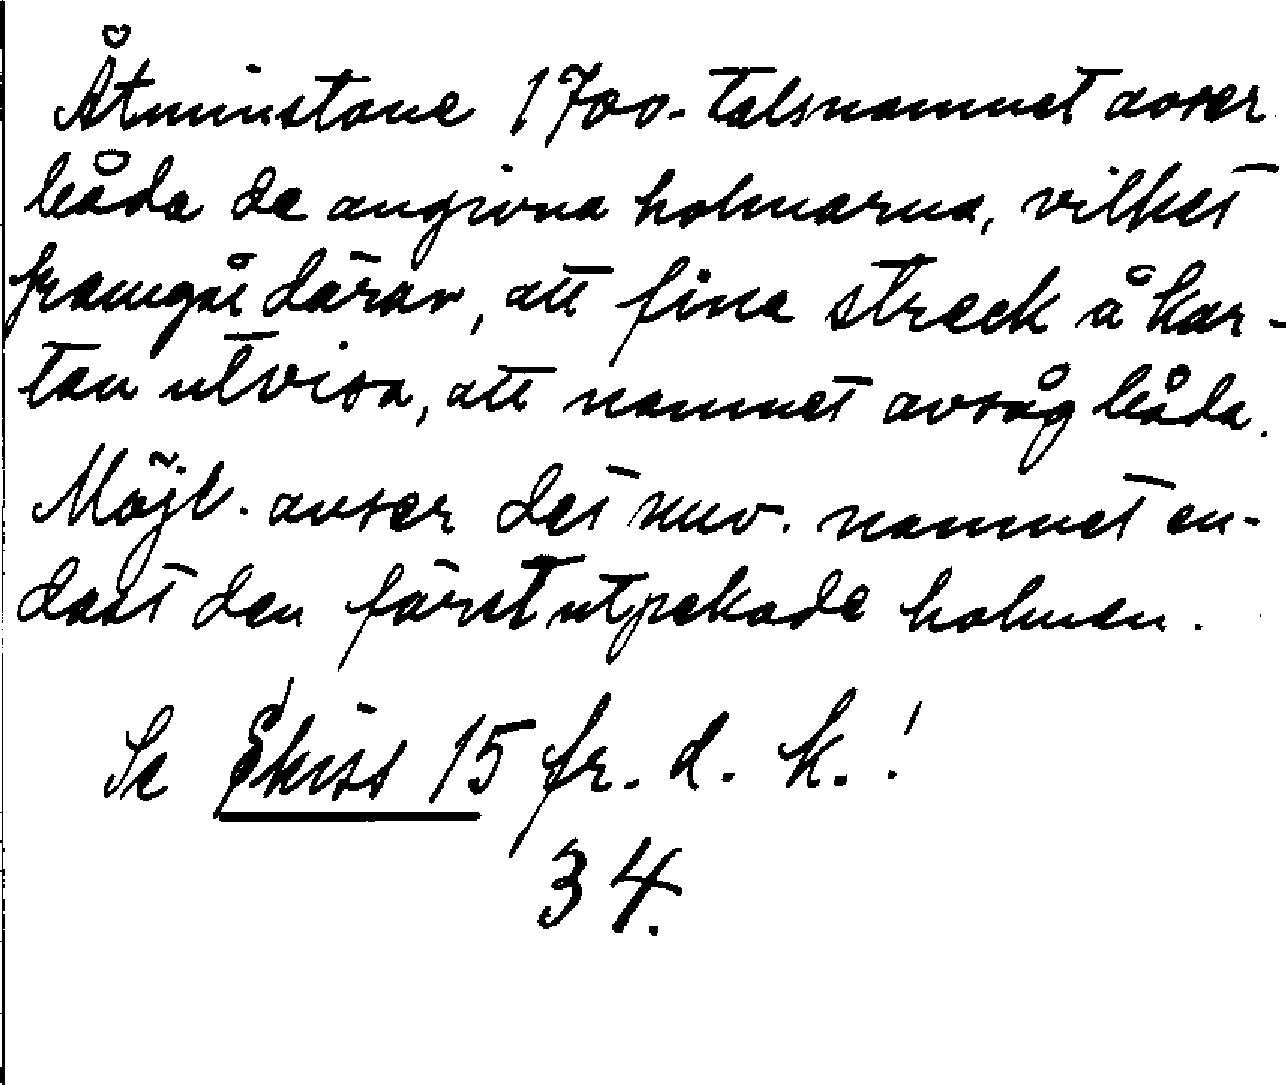 Åtminstone 1700-talsnamnet avser
båda de angivna holmarna, vilket
framgår därav, att fina streck å kar-
tan utvisa, att namnet avsåg båda.
Möjl. avser det nuv. namnet en-
dast den först utpekade holmen.
Se Skiss 15 fr. d. k.!
34.